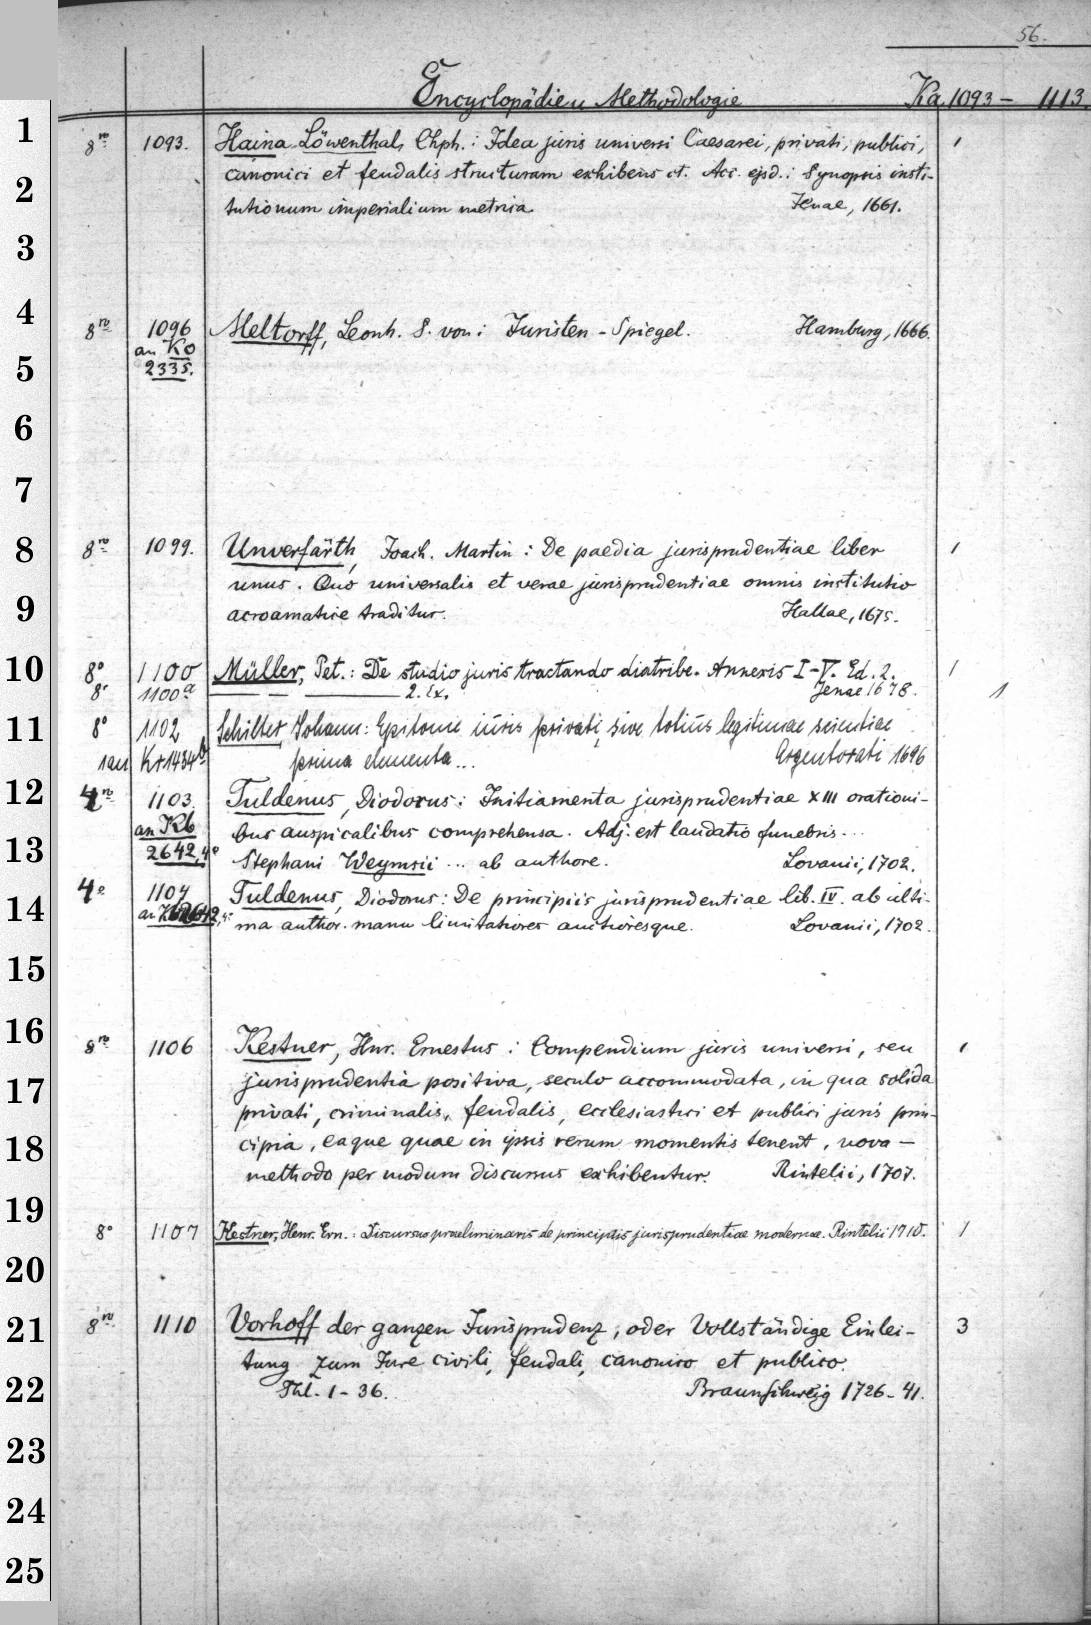 56.
Encyclopädie u Methodologie Ka 1093 – 1113.
1
8ᵛᵒ 1093. Haina Löwenthal, Chph.: Idea juris universi Caesarei, privati, publici, 1
canonici et feudalis structuram exhibens et. Acc. ejsd.: Synopsis insti-
2
tutionum imperialium metrica. Jenae, 1661.
3
4
8ᵛᵒ 1096 Meltorff, Leonh. S. von: Juristen-Spiegel. Hamburg, 1666.
an Ko
5
2335.
6
7
8
8ᵛᵒ 1099. Unverfärth, Joach. Martin: De paedia jurisprudentiae liber 1
unus. Quo universalis et verae jurisprudentiae omnis institutio
9
acroamatice traditur. Hallae, 1675.
10
8° 1100 Müller, Pet.: De studio juris tractando diatribe. Annexis I-V. Ed. 2. 1
8° 1100ᵃ — — —— 2. Ex. Jenae 1678. 1
11
8° 1102 Schilter, Johann: Epitome iuris privati, sive totius legitimae scientiae
1 an Kr 1434ᵇ prima elementa... Argentorati 1696
12
4ᵗᵒ 1103. Tuldenus, Diodorus: Initiamenta jurisprudentiae XIII orationi-
an Kb bus auspicalibus comprehensa. Adj. est laudatio funebris...
13
2642,4° Stephani Weymsii ... ab authore. Lovanii, 1702.
4° 1104 Tuldenus, Diodorus: De principiis jurisprudentiae lib. IV. ab ulti-
14
an Kb 2642,4° ma author. manu limitatiores auctioresque. Lovanii, 1702.
15
16
8ᵛᵒ 1106 Kestner, Hnr. Ernestus: Compendium juris universi, seu 1
jurisprudentia positiva, seculo accommodata, in qua solida
17
privati, criminalis, feudalis, ecclesiastici et publici juris prin-
18
cipia, eaque quae in ipsis rerum momentis tenent, nova –
methodo per modum discursus exhibentur. Rintelii, 1707.
19
8° 1107 Kestner, Henr. Ern.: Discursus praeliminaris de principiis jurisprudentiae modernae. Rintelii 1710. 1
20
21
8ᵛᵒ 1110 Vorhoff der ganzen Jurisprudenz, oder Vollständige Einlei- 3
tung zum Jure civili, feudali, canonico et publico.
22
Thl. 1-36. Braunschweig 1726-41.
23
24
25